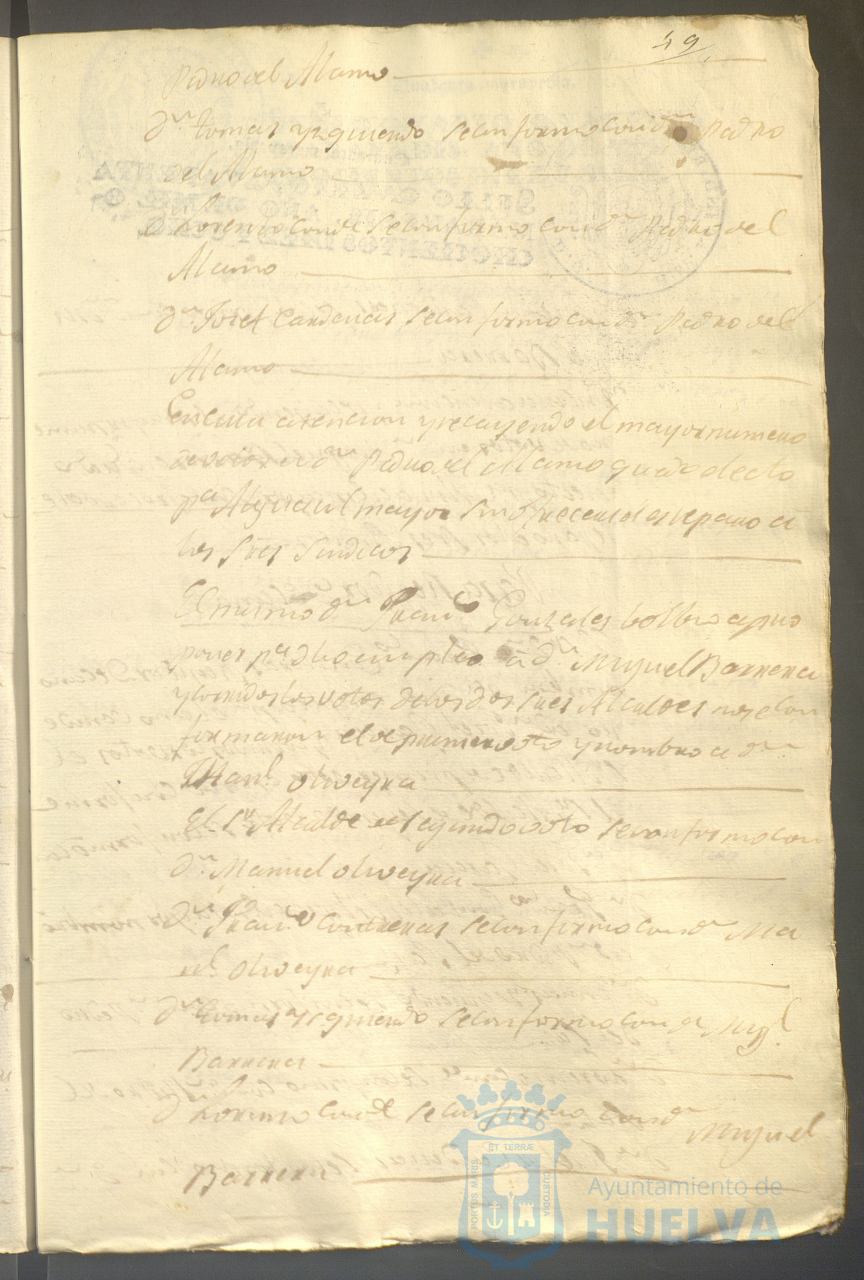 49
Pedro del Alamo
Dn. tomas yzquierdo se conformo con dn. Pedro
del Alamo
Dn. Lorenzo Conde se conformo con dn. Pedro del
Alamo
Dn. Josef Cardenas se conformo con dn. Pedro del
Alamo
En cuia atencion y recayendo el mayor numero
de votos en dn. Pedro del Alamo quedo electo
pa. Alguacil mayor sin ofrecerseles reparo a
los Sres Sindicos
El mismo dn. Franco. Gonzales bolbio a pro
poner pa. dho empleo à dn. Miguel Barrera
y corridos los votos de los dos Sres Alcaldes no se con
formaron el de primero voto y nombro a dn.
Manl. oliveyra
El Sr. Alcalde de segundo voto se conformo con
dn. Manuel oliveyra
Dn. Franco. Contreras se conformo con dn. Ma
nl. oliveyra
Dn. tomas yzquierdo se conformo con dn. Migl.
Barrera
Dn. Lorenzo Conde se conformo con dn. Miguel
Barrera
PORTUS MARIS ET TERRÆ CUSTODIA
Ayuntamiento de
HUELVA